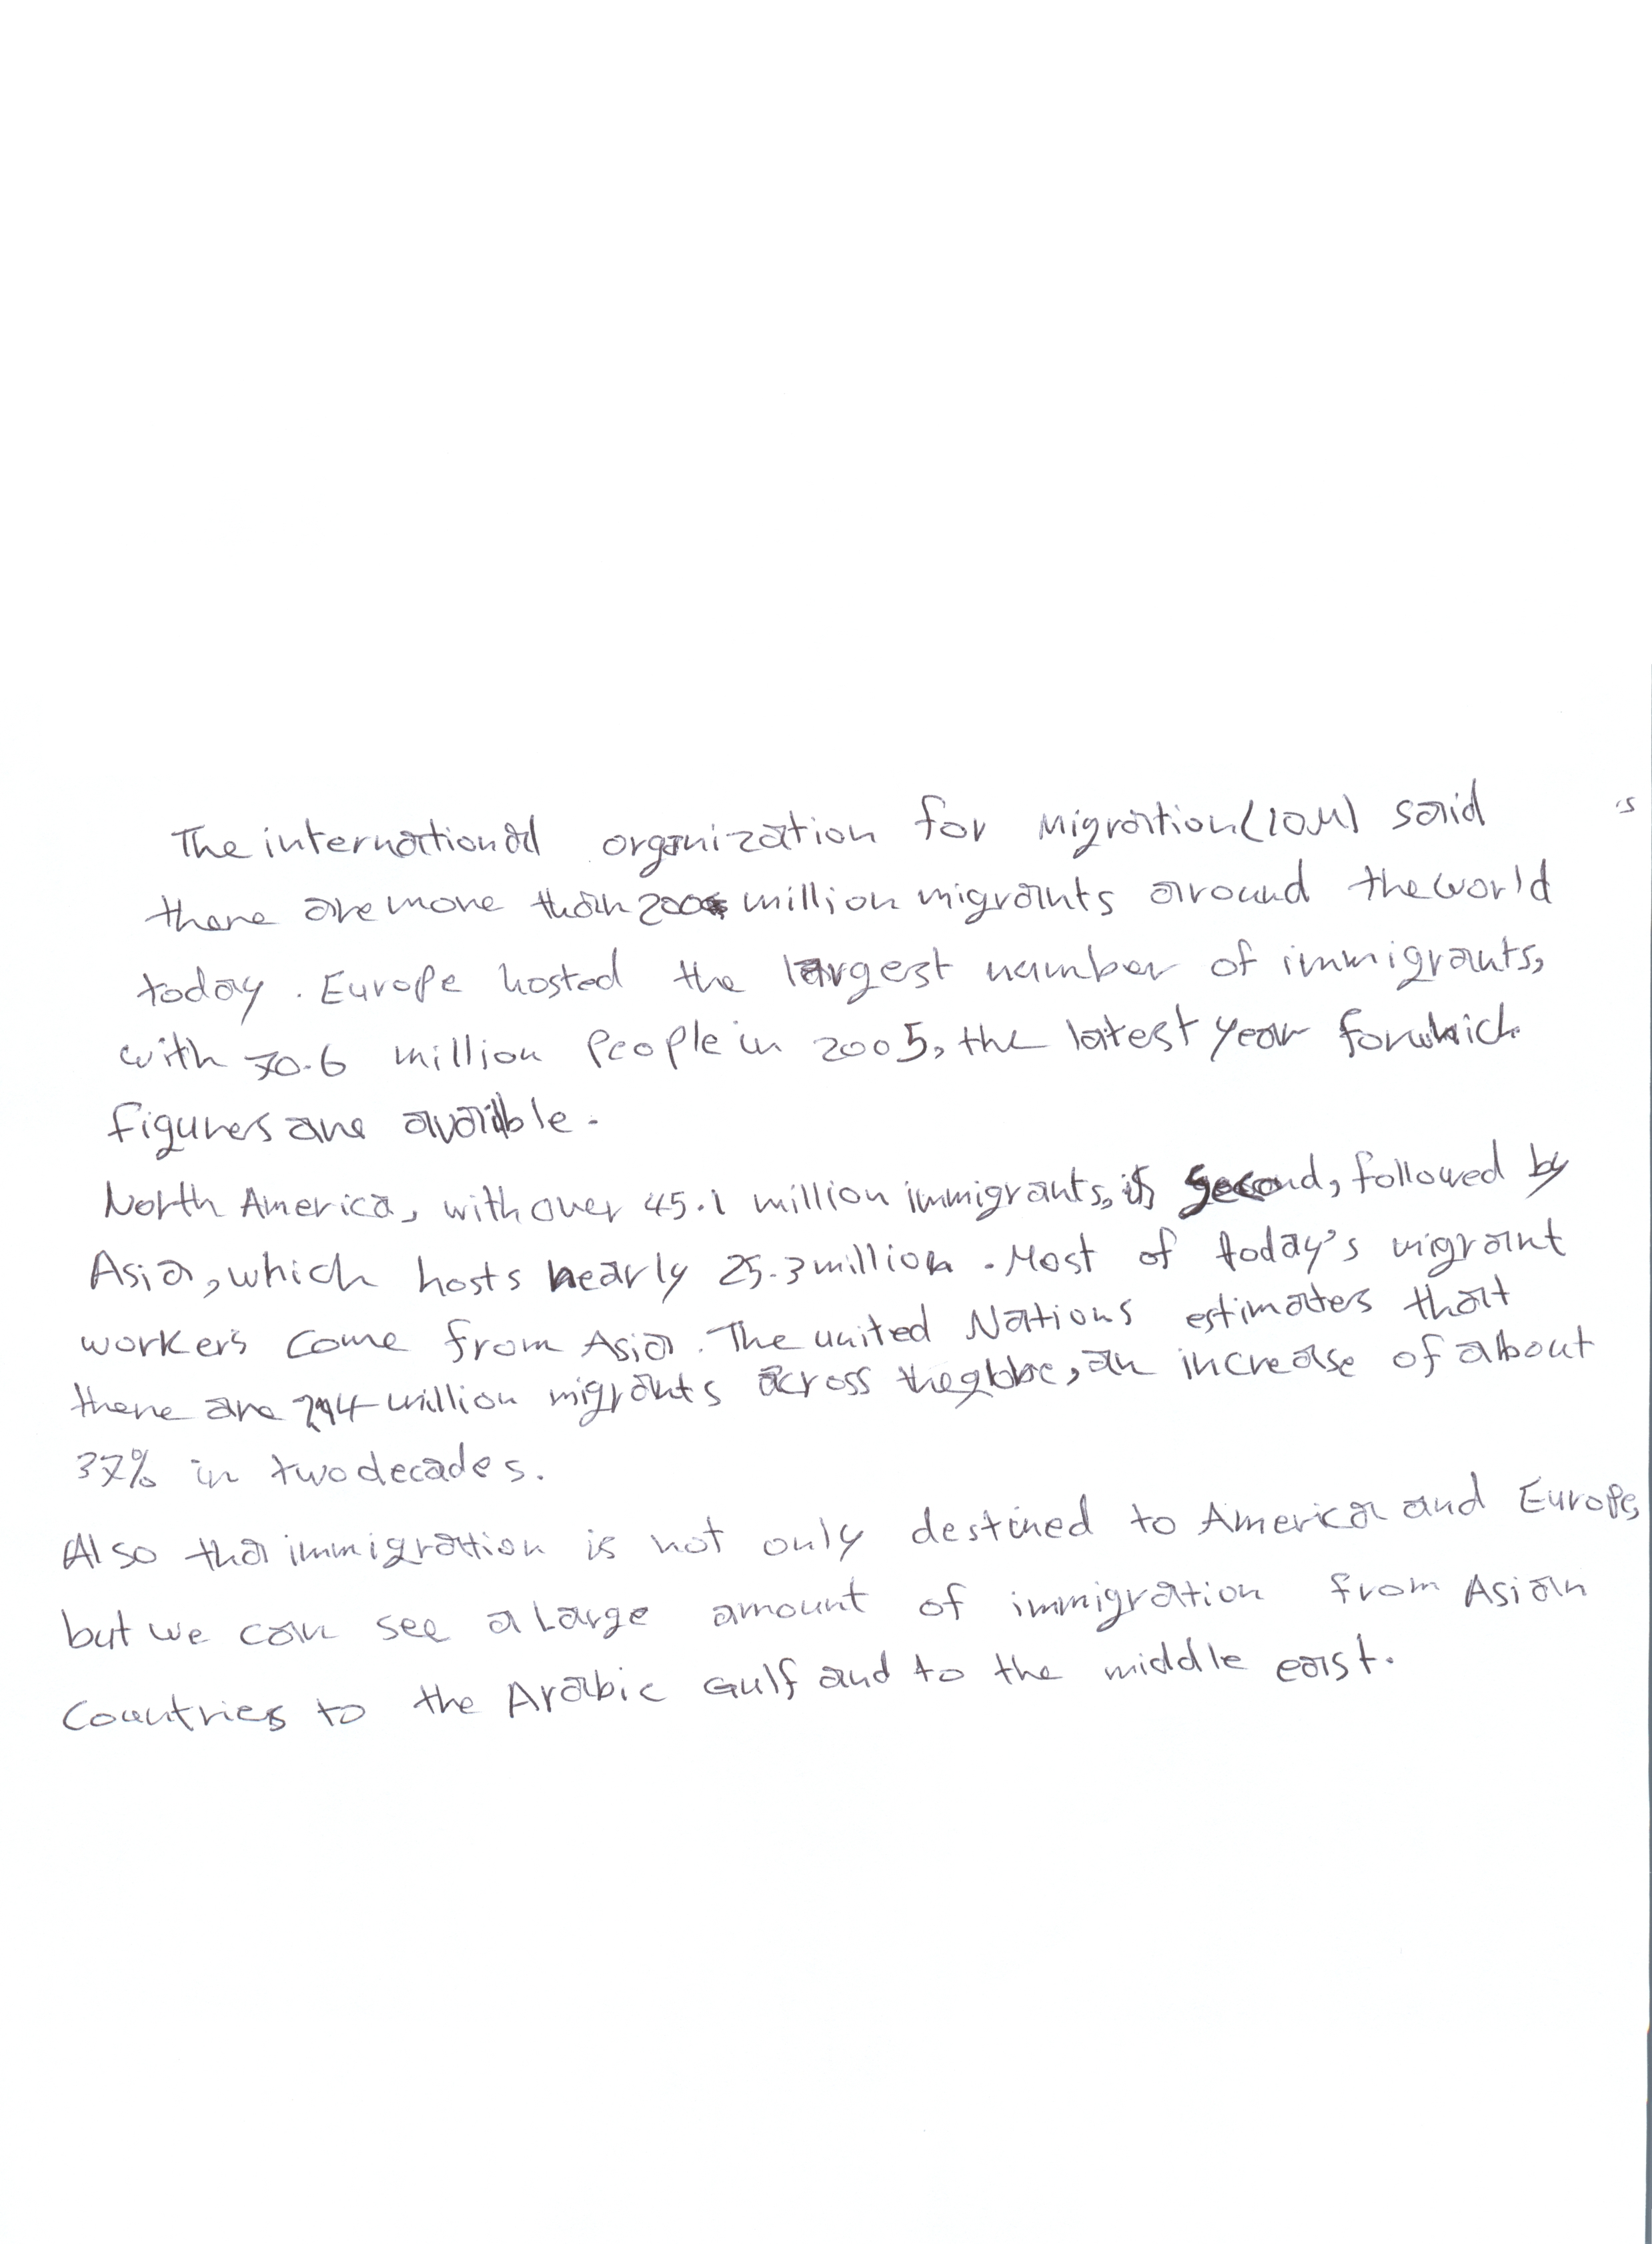 The international organization for Migration (IOM) said
there are more than 200 million migrants around the world
today. Europe hosted the largest number of immigrants,
with 70.6 million people in 2005, the latest year for which
figures are availble.
North America, with over 45.1 million immigrants, is second, followed by
Asia, which hosts nearly 25.3 million. Most of today's migrant
workers come from Asia. The united Nations estimates that
there are million migrants across the globe, an increase of about
37% in two decades.
Also tha immigration is not only destined to America and Europe,
but we can see a large amount of immigration from Asian
Countries to the Arabic Gulf and to the middle east.